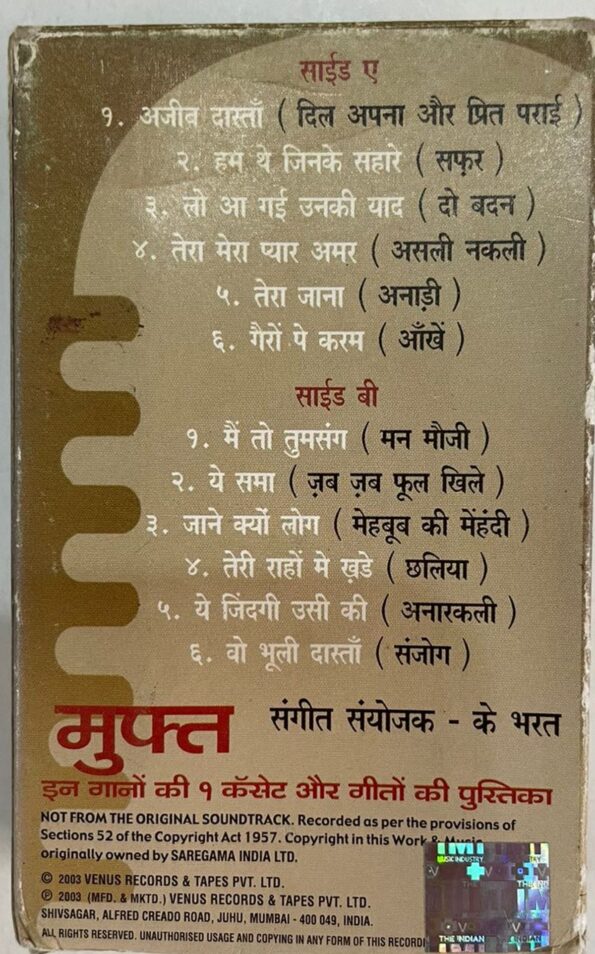 साईड ए
१. अजीब दास्ताँ ( दिल अपना और प्रित पराई )
२. हम थे जिनके सहारे ( सफ़र )
३. लो आ गई उनकी याद ( दो बदन )
४. तेरा मेरा प्यार अमर ( असली नकली )
५. तेरा जाना ( अनाड़ी )
६. गैरों पे करम ( आँखें )
साईड बी
१. मैं तो तुमसंग ( मन मौजी )
२. ये समा ( ज़ब ज़ब फूल खिले )
३. जाने क्यों लोग ( मेहबूब की मेंहंदी )
४. तेरी राहों मे ख़डे ( छलिया )
५. ये जिंदगी उसी की ( अनारकली )
६. वो भूली दास्ताँ ( संजोग )
मुफ्त संगीत संयोजक - के भरत
इन गानों की १ कॅसेट और गीतों की पुस्तिका
NOT FROM THE ORIGINAL SOUNDTRACK. Recorded as per the provisions of
Sections 52 of the Copyright Act 1957. Copyright in this Work & Music
originally owned by SAREGAMA INDIA LTD.
© 2003 VENUS RECORDS & TAPES PVT. LTD.
℗ 2003 (MFD. & MKTD.) VENUS RECORDS & TAPES PVT. LTD.
SHIVSAGAR, ALFRED CREADO ROAD, JUHU, MUMBAI - 400 049, INDIA.
ALL RIGHTS RESERVED. UNAUTHORISED USAGE AND COPYING IN ANY FORM OF THIS RECORDI
IMI
MUSIC INDUSTRY
THE INDIAN